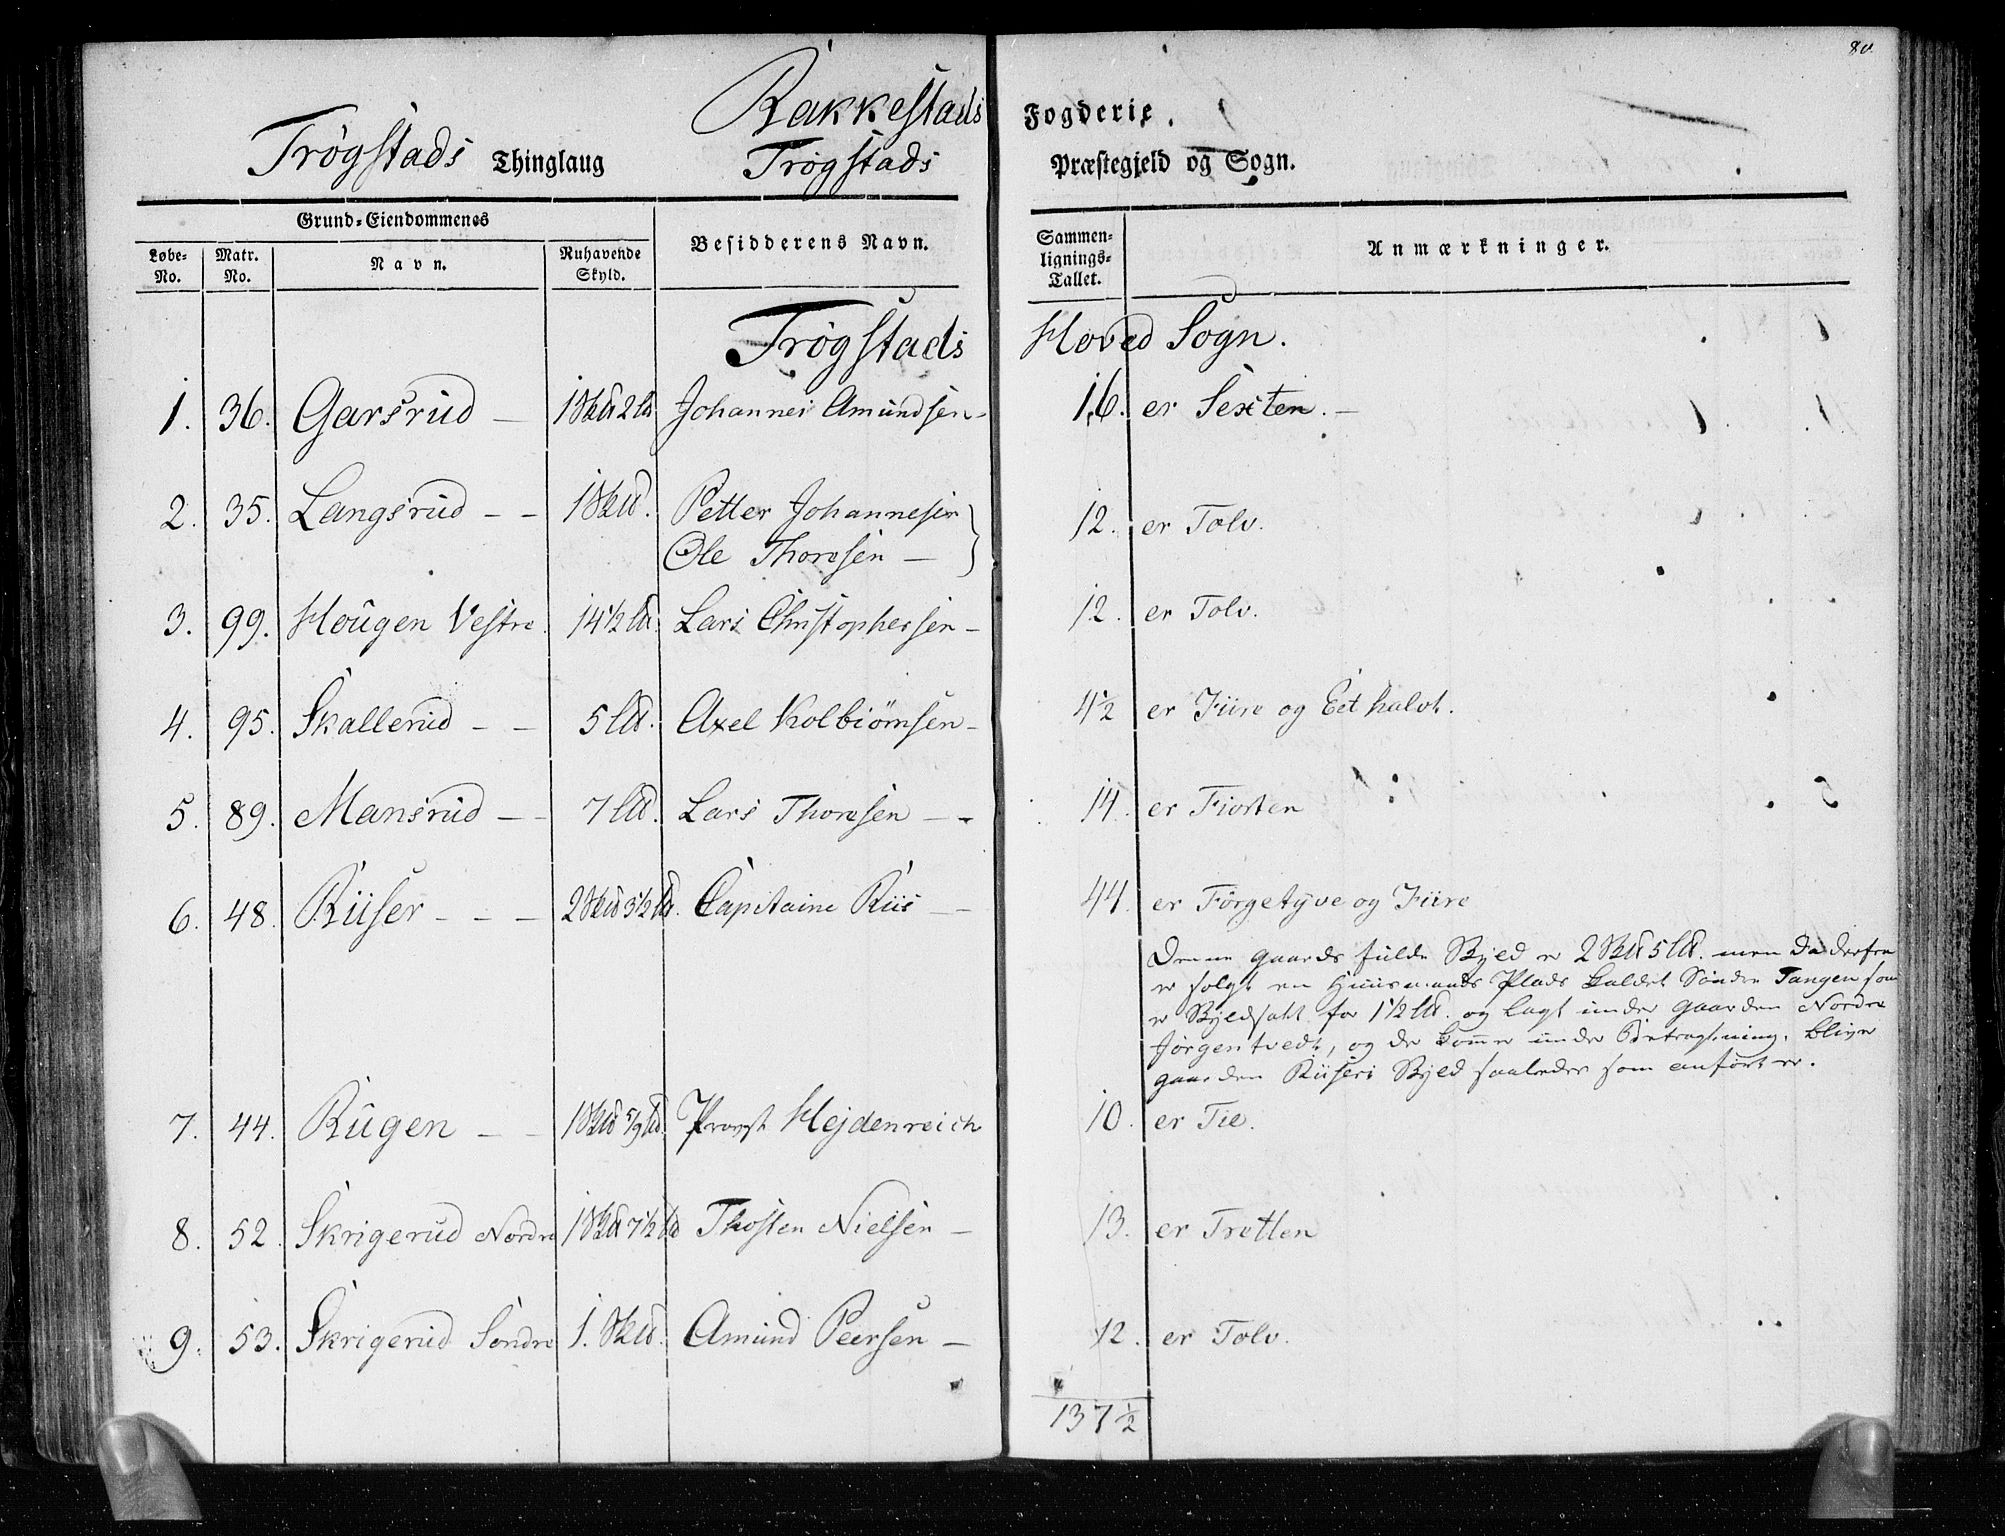 80.
Rakkestads Fogderie.
Trøgstads Thinglaug Trøgstads Præstegjeld og Sogn.
Grund-Eiendommenes
Løbe-No. Matr. No. Navn. Ruhavende Skyld. Besidderens Navn. Sammen-lignings-Tallet. Anmærkninger.
Trøgstads Hoved Sogn.
1. 36. Garsrud — 1 Sk℔ 2 L℔ Johannes Amundsen - 16. er Sexten. -
2. 35. Langsrud - - 1 Sk℔. Petter Johannesen 12. er Tolv.
Ole Thoresen -
3. 99. Hougen Vestre. 14½ L℔. Lars Christophersen - 12. er Tolv.
4. 95. Skallerud - - 5 L℔. Axel Kolbiørnsen - 4½ er Fiire og Eet halvt.
5. 89. Mansrud - - 7 L℔. Lars Thoresen - - 14. er Fiorten
6. 48. Riiser - - - 2 Sk℔ 3½ L℔. Capitaine Riis - 44. erFørgetyve og Fiire
Denne Gaards fulde Skyld er 2 Sk℔ 5 L℔. men da derfra
er solgt en Huusmands Plads kaldet Søndre Tangen som
er Skyldsatt for 1½ L℔. og lagt under Gaarden Nordre
Jørgentvedt, og de komme under Betragtning, bliver
Gaarden Riisers Skyld saaledes som anført er.
7. 44. Rugen - - 1 Sk℔ 5/9 L℔. Provst Hejdenreich 10. er Tie.
8. 52. Skrigerud Nordre 1 Sk℔ 7½ L℔ Thosten Nielsen - 13. er Tretten
9. 53. Skrigerud Søndre 1. Sk℔. Amund Peersen - 12. er Tolv.
137½